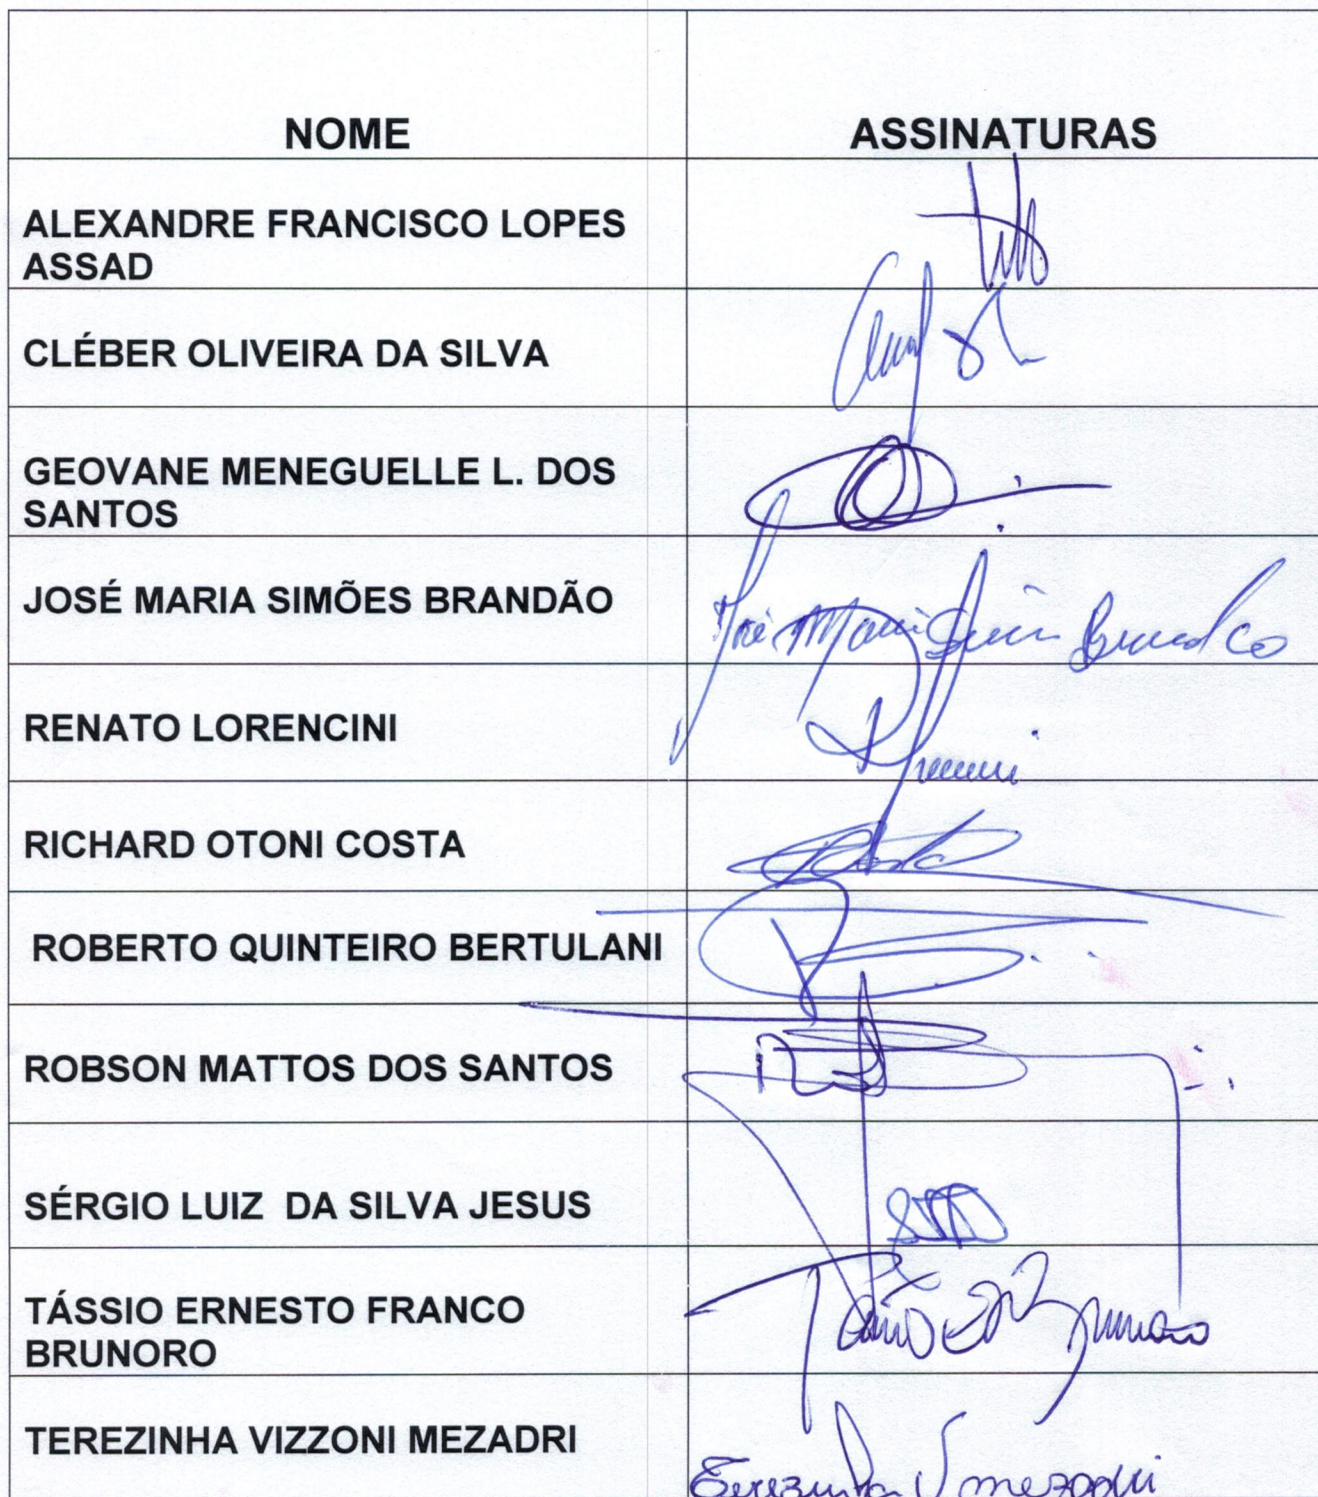 NOME ASSINATURAS
ALEXANDRE FRANCISCO LOPES
ASSAD
CLÉBER OLIVEIRA DA SILVA
GEOVANE MENEGUELLE L. DOS
SANTOS
JOSÉ MARIA SIMÕES BRANDÃO
José Maria Brandão
RENATO LORENCINI
RICHARD OTONI COSTA
ROBERTO QUINTEIRO BERTULANI
ROBSON MATTOS DOS SANTOS
SÉRGIO LUIZ  DA SILVA JESUS
TÁSSIO ERNESTO FRANCO
BRUNORO
TEREZINHA VIZZONI MEZADRI
Terezinha V mezadri